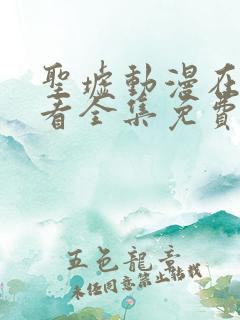 聖墟動漫在
看全集免費
五色龍章
未經同意禁止轉載